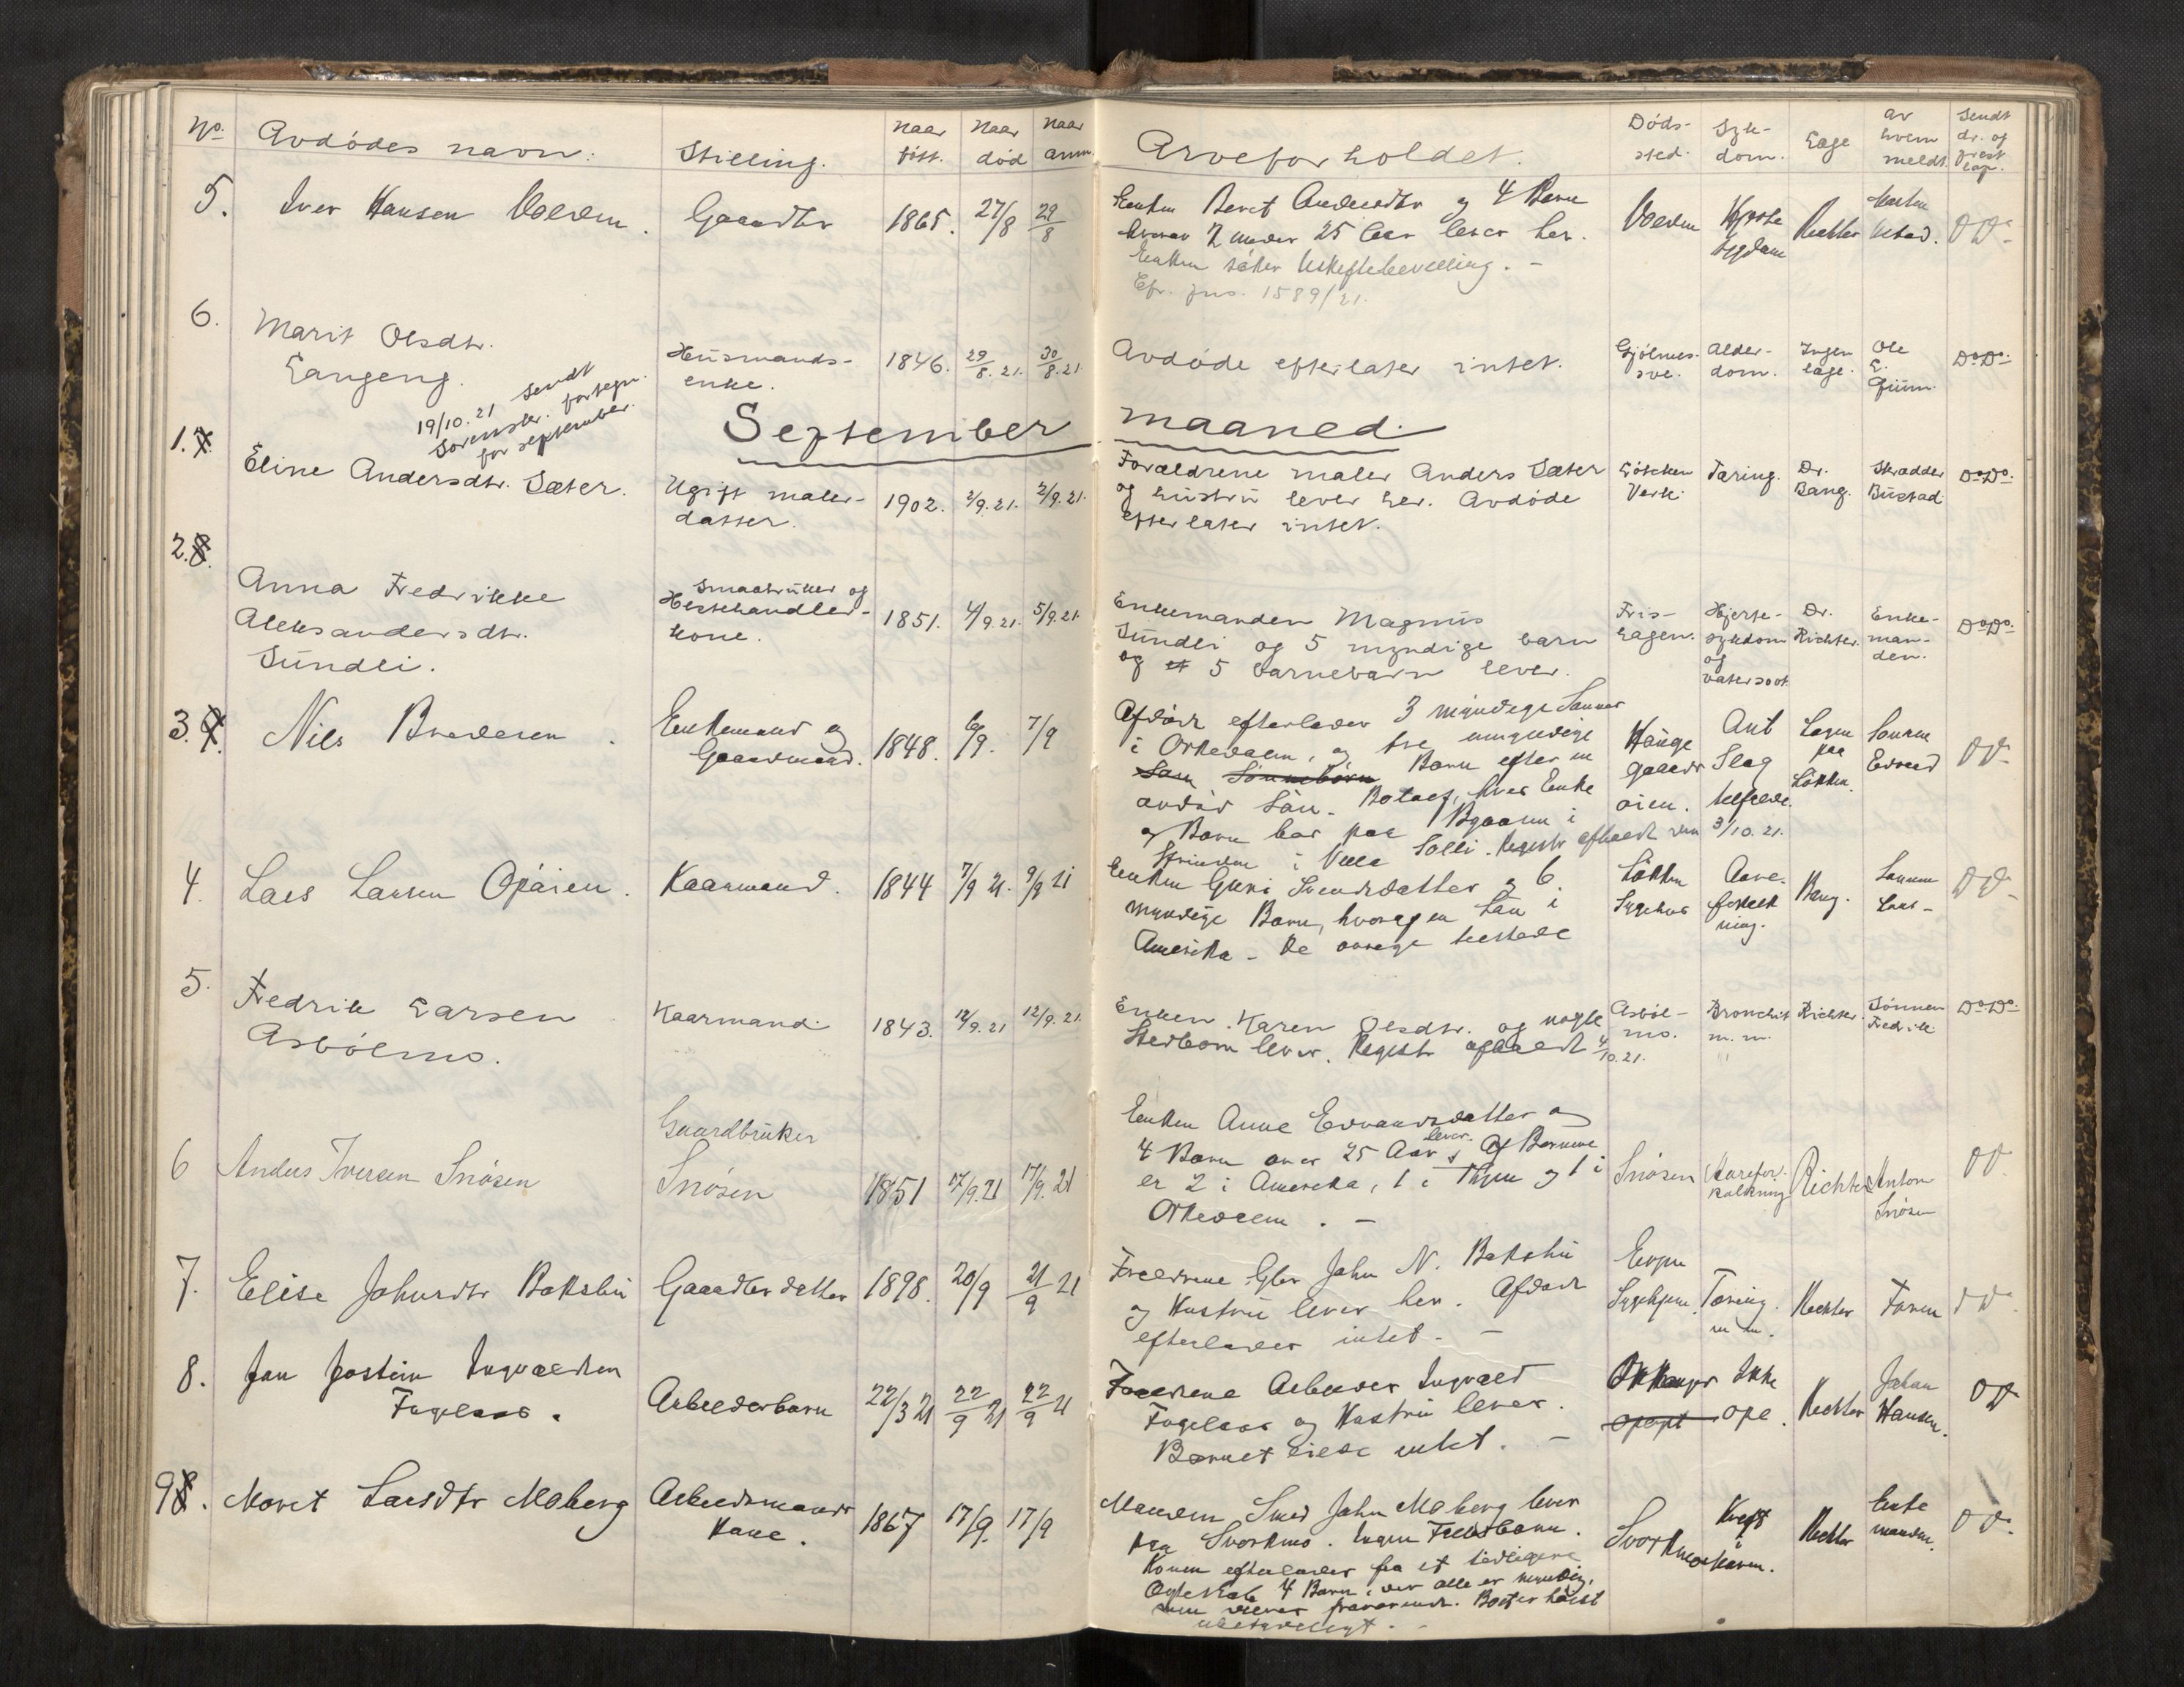 No. Avdødes navn: Stilling. Naar født. Naar død Naar anm. Arveforholdet. Døds-sted. Syk-dom. Læge av hvem meldt. Sendt dr. og prest rap.
5. Iver Hansen Volden. Gaardbr 1865. 27/8 29/8
Enken Beret Andersdtr og 4 Børn
hvorav 2 under 25 Aar lever her.
Enken søker Uskiftebevilling. -
Cfr. jus. 1589/21.
Volden Hjerte sygdom Richter Ustad. DD-
6. Marit Olsdtr.
Langeng.
Husmands-
enke.
1846. 29/8.21. 30/8.21
Avdøde efterlater intet.
Gjølmes- Alder- Ingen Ole DoDo-
dom. læge. E.
19/10.21 sendt
Sorenskr. fortegn.
for september.
September maaned.
1. 7.
Eline Andersdtr. Sæter.
Ugift maler-
datter.
1902. 2/9.21. 2/9.21.
Forældrene maler Anders Sæter
og hustru lever her. Avdøde
efterlater intet.
Løkken Tæring. Dr. Skrædder DoDo-
Verk. Bang. Bustad
2. 8.
Anna Fredrikke
Aleksandersdtr.
Sundli.
Smaabruker og
Hestehandler-
kone.
1851. 4/9.21. 5/9.21.
Enkemanden Magnus
Sundli og 5 myndige barn
og et 5 barnebarn lever.
Fris- Hjerte- Dr. Enke- DoDo-
hagen. sykdom Richter. man-
og den.
vatersoot
3. 9. Nils Bredesen.
Enkemand og
Gaardmand.
1848. 6/9. 7/9
Afdøde efterlader 3 myndige Sønner
i Orkedalen, og tre umyndige
Søn Sønnebørn Børn efter en
avdød Søn. Botaef, hvis Enke
og Børn bor paa Bgaarn i
Strinden i Villa Solli. Registr afholdt den 3/10.21.
Hauge Ant Lægen Sønnen
gaards Slag paa Edvard DD-
øien. tilfælde. Løkken.
4. Lars Larsen Opøien. Kaarmand. 1844 7/9 21. 9/9 21
Enken Guri Svendsdatter og 6
myndige Børn, hvoraf en Søn i
Amerika - De øvrige tilstede
Løkken Aare- Bang. Sønnen DD-
Sygehus forkalk Lars -
ning.
5.
Fredrik Larsen
Asbølmo.
Kaarmand. 1843. 12/9.21 12/9.21.
Enken Karen Olsdtr. og nogle
Sterbørn lever. Registr afholdt 4/10.21.
Asbøl- Bronchit Richter. Sønnen DoDo-
mo. m.m. Fredrik
6 Anders Iversen Snøsen
Gaardbruker
Snøsen
1851 17/9.21 17/9.21
Enken Anne Edvardsdatter og
4 Børn over 25 Aar lever. Af Børnene
er 2 i Amerika, 1 i Thjem og 1 i
Orkedalen. -
Snøsen Aarefor- Richter Anton DD.
kalkning Snøsen
7. Elise Johnsdtr Bakslii Gaardbr datter 1898. 20/9 21/9 21
Forældrene Gbr John N. Bakslii
og Hustru lever her. Afdøde
efterlader intet. -
Sygehjem. Tæring. Richter Faren DD-
m.m.
8. Jan Jostein Ingvaldsen
Fuglaas.
Arbeiderbarn 22/3 21 22/9 21 22/9 21
Forældrene Arbeider Ingvald
Fuglaas og Hustru lever.
Barnet eiede intet. -
Orkanger Ikke Johan DD
opgit opg. Richter Hansen.
98. Marit Larsdtr Moberg
Arbeidsmands
Kone.
1867 17/9. 17/9
Manden Smed John Moberg lever
paa Svorkmo. Ingen Fællesbørn.
Konen efterlader fra et tidligere
Ægteskab 4 Børn, der alle er myndig,
som viener fraværende. Boet er høist
ubetydeligt. -
Svorkmo Kræft Richter Enke DD-
i manden.